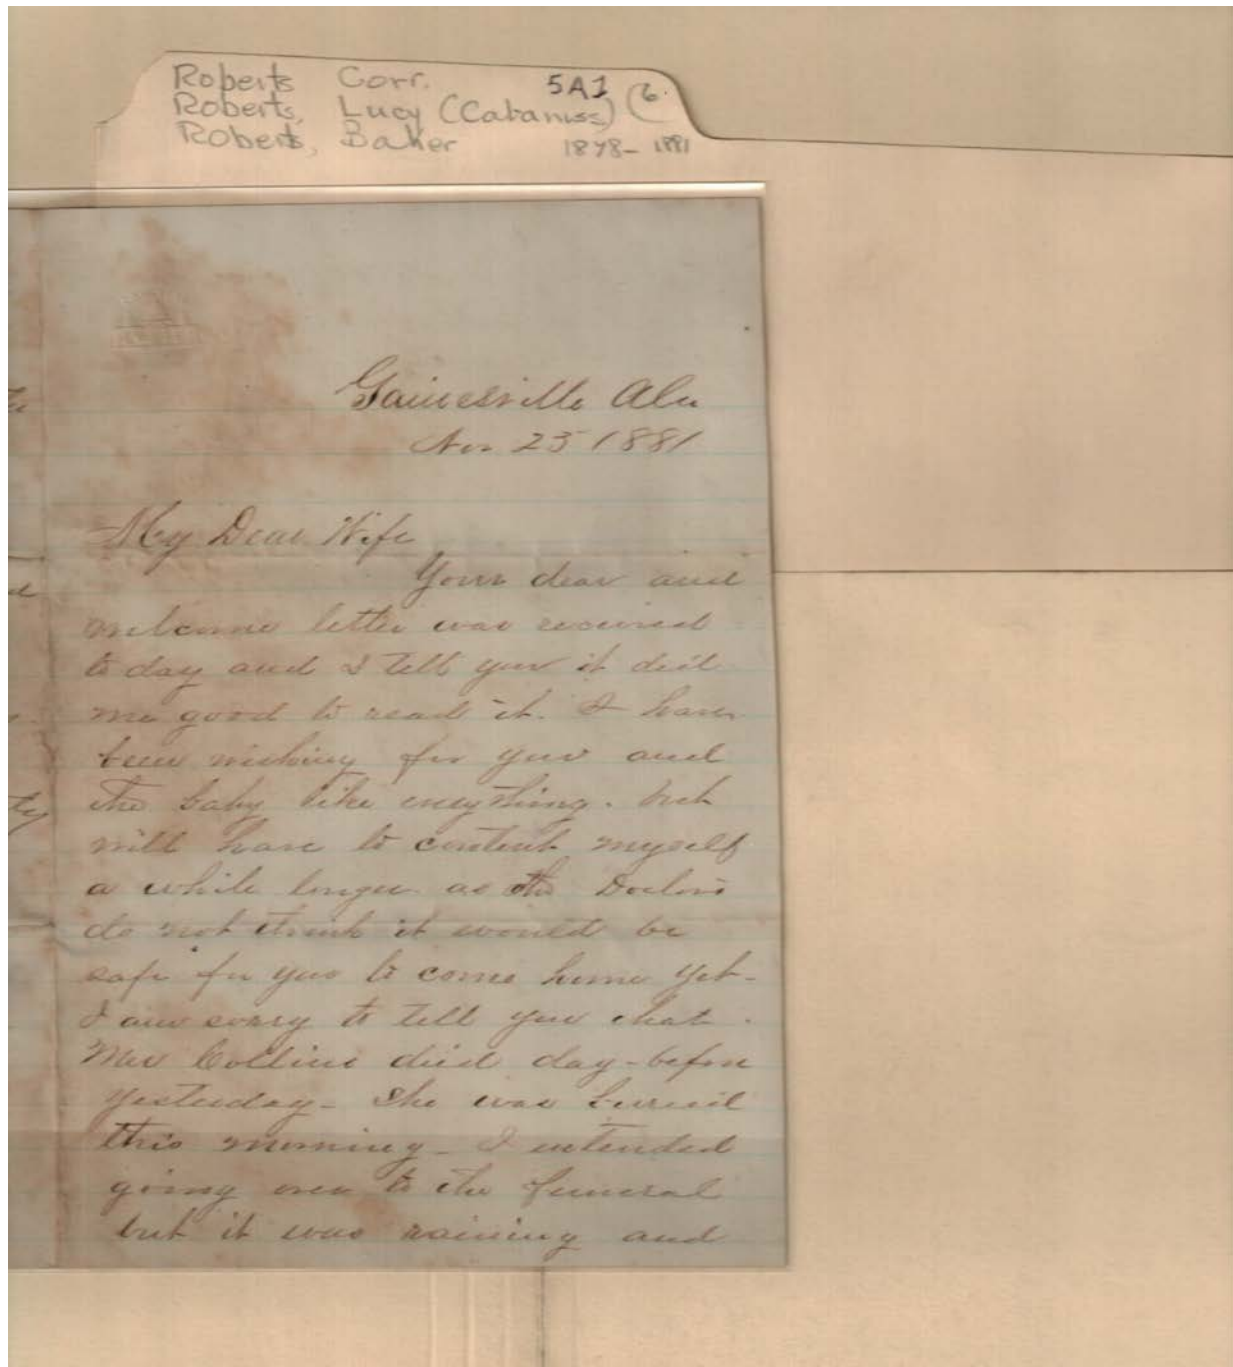 Roberts Corr. 5A1 (6)
Roberts, Lucy (Cabaniss)
Roberts, Baker 1878-1881
Gainesville Ala
Nov 25 1881
My Dear Wife
Your dear and
welcome letter was received
to day and I tell you it did
me good to read it. I have
been wishing for you and
the baby like everything. but
will have to content myself
a while longer as the Doctors
do not think it would be
safe for you to come home yet-
I am sorry to tell you that
Mrs Collins died day-before
yesterday- She was buried
this morning- I intended
going over to the funeral
but it was raining and